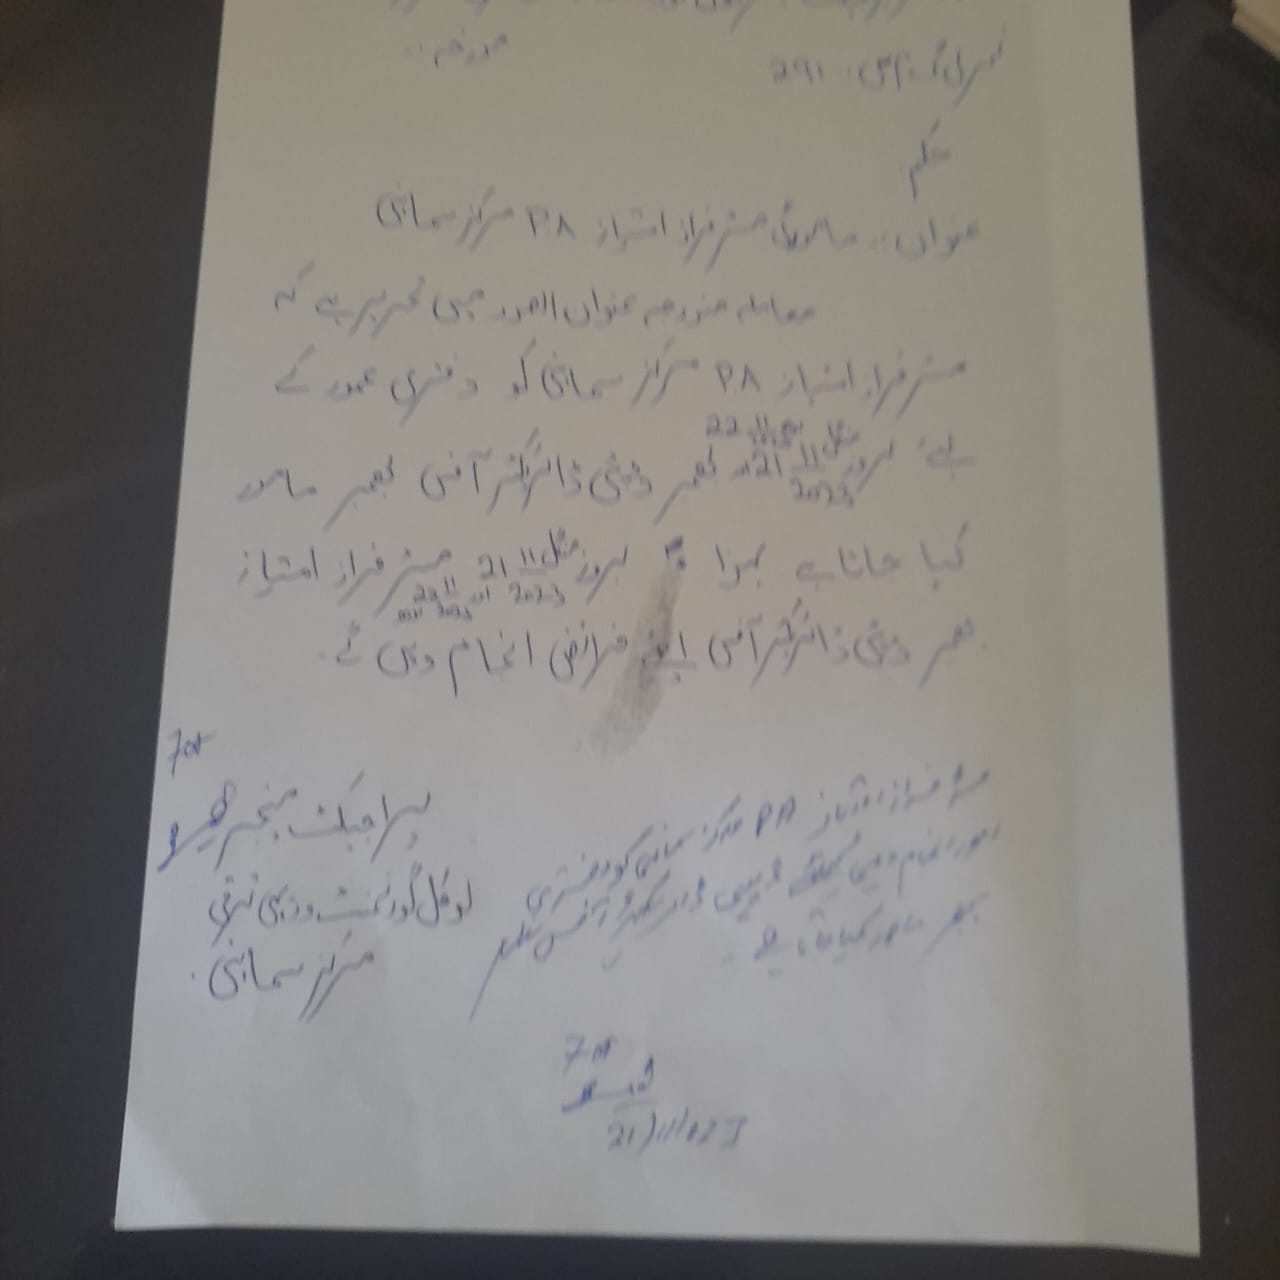 مورخہ:.
291
حکم
عنوان:. مامورگی مسٹر فراز امتیاز PA مرکز سماہنی
معاملہ مندرجہ عنوان الصدر میں تحریر ہے کہ
مسٹر فراز امتیاز PA مرکز سماہنی کو دفتری عمور کے
22 11
لئے بروز منگل 21 11 2023 اور بھمبر ڈپٹی ڈائریکٹر آفس بھمبر مامور
کیا جاتا ہے لہذا بروز منگل 21 11 2023 مسٹر فراز امتیاز
اور 22 11 2023
بھمبر ڈپٹی ڈائریکٹر آفس اپنے فرائض انجام دیں گے۔
پراجیکٹ منیجر
لوکل گورنمنٹ و دیہی ترقی
مرکز سماہنی۔
مسٹر فراز امتیاز PA مرکز سماہنی کو دفتری
امور انجام دہی کیلئے ڈپٹی ڈائریکٹر آفس
بھمبر مامور کیا جاتا ہے۔
21/11/023